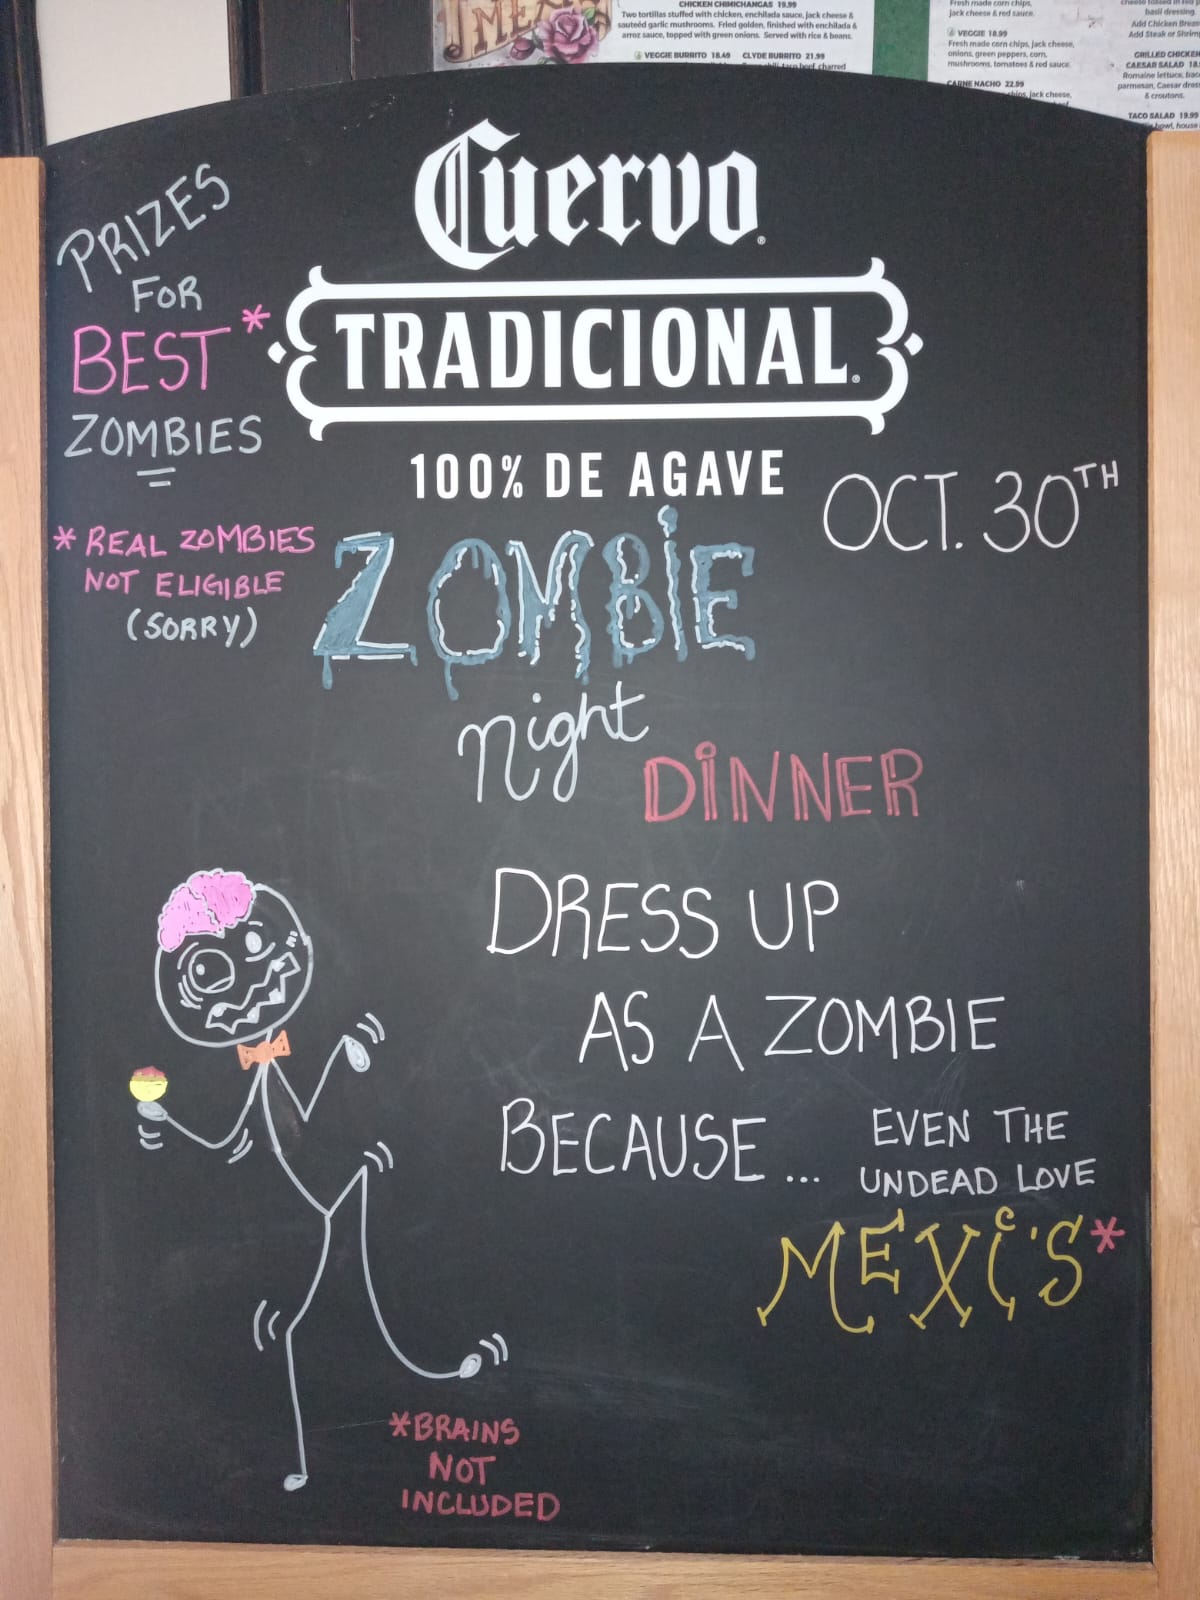 MEXI
CHICKEN CHIMICHANGAS 19.99
Two tortillas stuffed with chicken, enchilada sauce, jack cheese &
sautéed garlic mushrooms. Fried golden, finished with enchilada &
arroz sauce, topped with green onions. Served with rice & beans.
VEGGIE BURRITO 18.49 CLYDE BURRITO 21.99
taco beef, charred
Fresh made corn chips,
jack cheese & red sauce.
VEGGIE 18.99
Fresh made corn chips, jack cheese,
onions, green peppers, corn,
mushrooms, tomatoes & red sauce.
CARNE NACHO 22.99
chips, jack cheese,
basil dressing.
Add Chicken
Add Steak or
GRILLED CHICKEN
CAESAR SALAD
Romaine lettuce,
parmesan, Caesar
& croutons.
TACO SALAD 19.99
bowl, house
Cuervo®
TRADICIONAL®
100% DE AGAVE
PRIZES
FOR
BEST*
ZOMBIES
* REAL ZOMBIES
NOT ELIGIBLE
(SORRY)
OCT. 30TH
ZOMBIE
night
DINNER
DRESS UP
AS A ZOMBIE
BECAUSE...
EVEN THE
UNDEAD LOVE
MEXI'S*
*BRAINS
NOT
INCLUDED